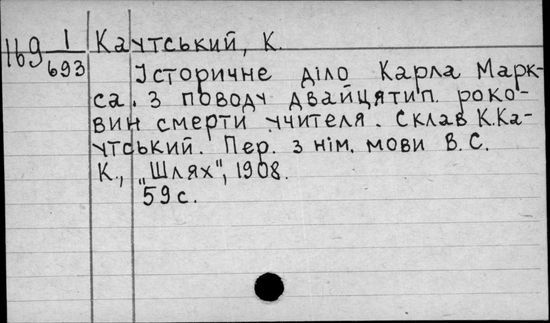 169 1/693
Каутський, К.
Історичне діло Карла Марк-
са. З поводу двайцятип. роко-
вин смерти учителя. Склав К.Ка-
утський. Пер. з нім. мови В.С.
К., „Шлях", 1908.
59 с.